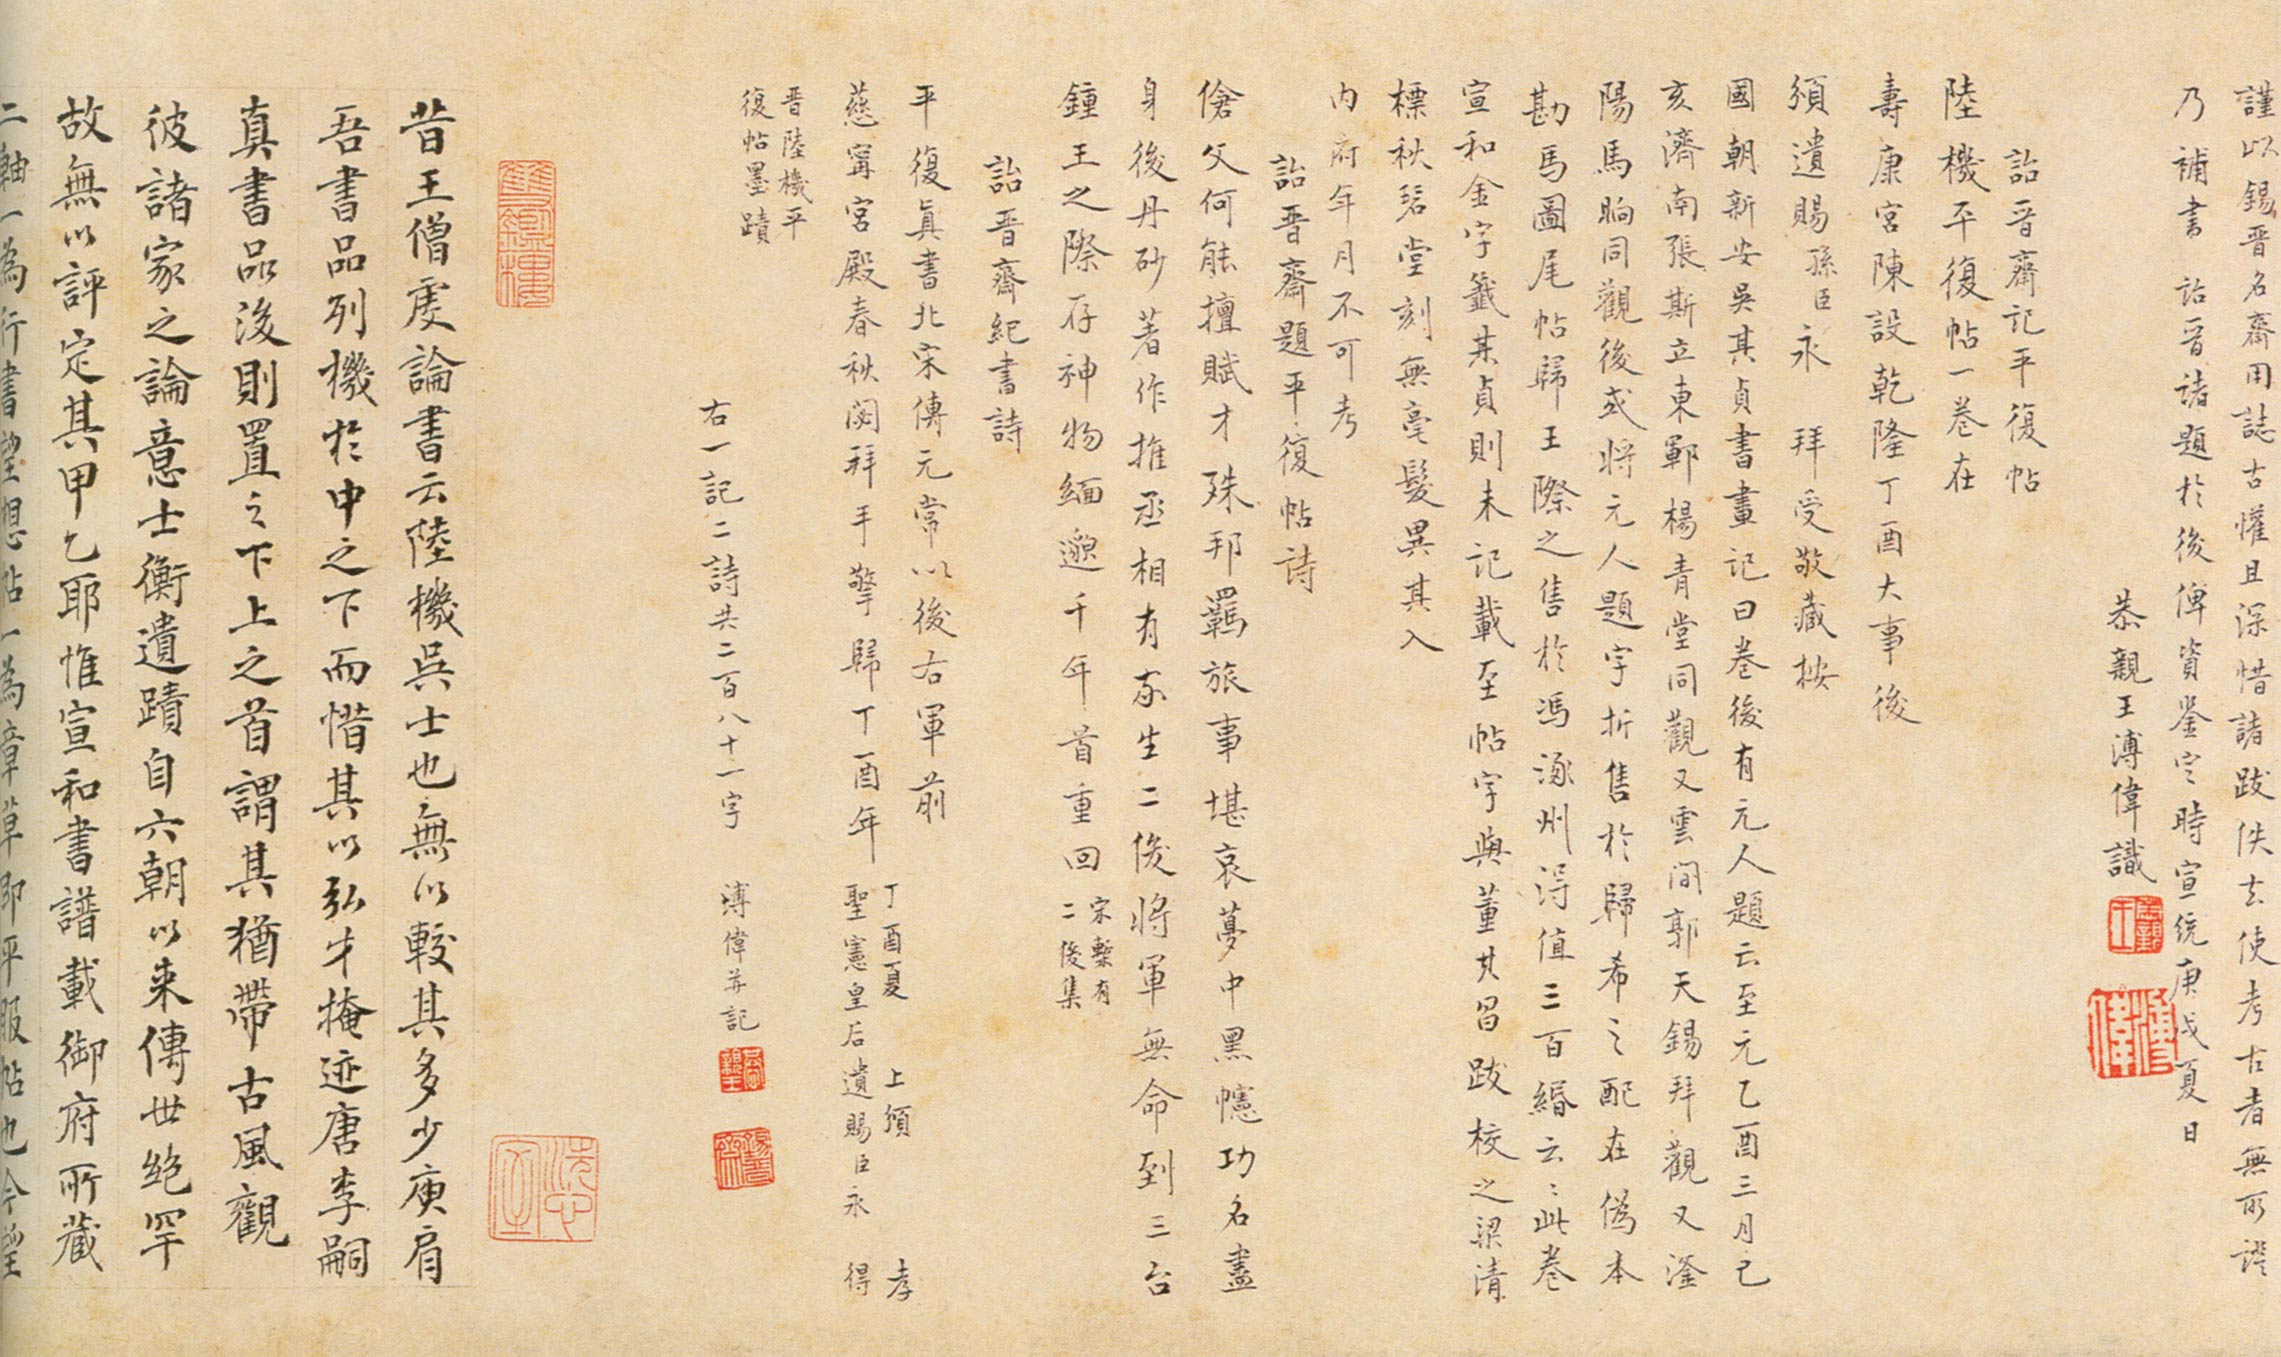 謹以錫晋名齋用誌古懽且深惜諸跋佚去使考古者無所證
乃補書詒晋諸題於後俾資鉴定時宣統庚戌夏日
恭親王溥偉識
詒晋齋記平復帖
陸機平復帖一卷在
壽康宮陳設乾隆丁酉大事後
頒遺賜孫臣永拜受敬藏按
國朝新安吳其貞書畫記曰卷後有元人題云至元乙酉三月己
亥濟南張斯立東鄆楊青堂同觀又雲間郭天錫拜觀又滏
陽馬昫同觀後或将元人題字折售於歸希之配在偽本
勘馬圖尾帖歸王際之售於馮涿州得值三百緡云〻此卷
宣和金字籤其貞則未記載至帖字與董其昌跋校之梁清
標秋碧堂刻無毫髮異其入
内府年月不可考
詒晋齋題平復帖詩
傖父何能擅賦才殊邦羈旅事堪哀夢中黑幰功名盡
身後丹砂著作推丞相有家生二俊将軍無命到三台
鍾王之際存神物緬邈千年首重回
宋槧有
二俊集
詒晋齋紀書詩
平復真書北宋傳元常以後右軍前
慈寧宮殿春秋閟拜手擎歸丁酉年
丁酉夏 上頒 孝
聖憲皇后遺賜臣永 得
晋陸機平
復帖墨蹟
右一記二詩共二百八十一字 溥偉并記
昔王僧虔論書云陸機吳士也無以較其多少庾肩
吾書品列機於中之下而惜其以弘才掩迹唐李嗣
真書品後則置之下上之首謂其猶帶古風觀
彼諸家之論意士衡遺蹟自六朝以来傳世絶罕
故無以評定其甲乙耶惟宣和書譜載御府所藏
二軸一為行書望想帖一為章草即平服帖也今望